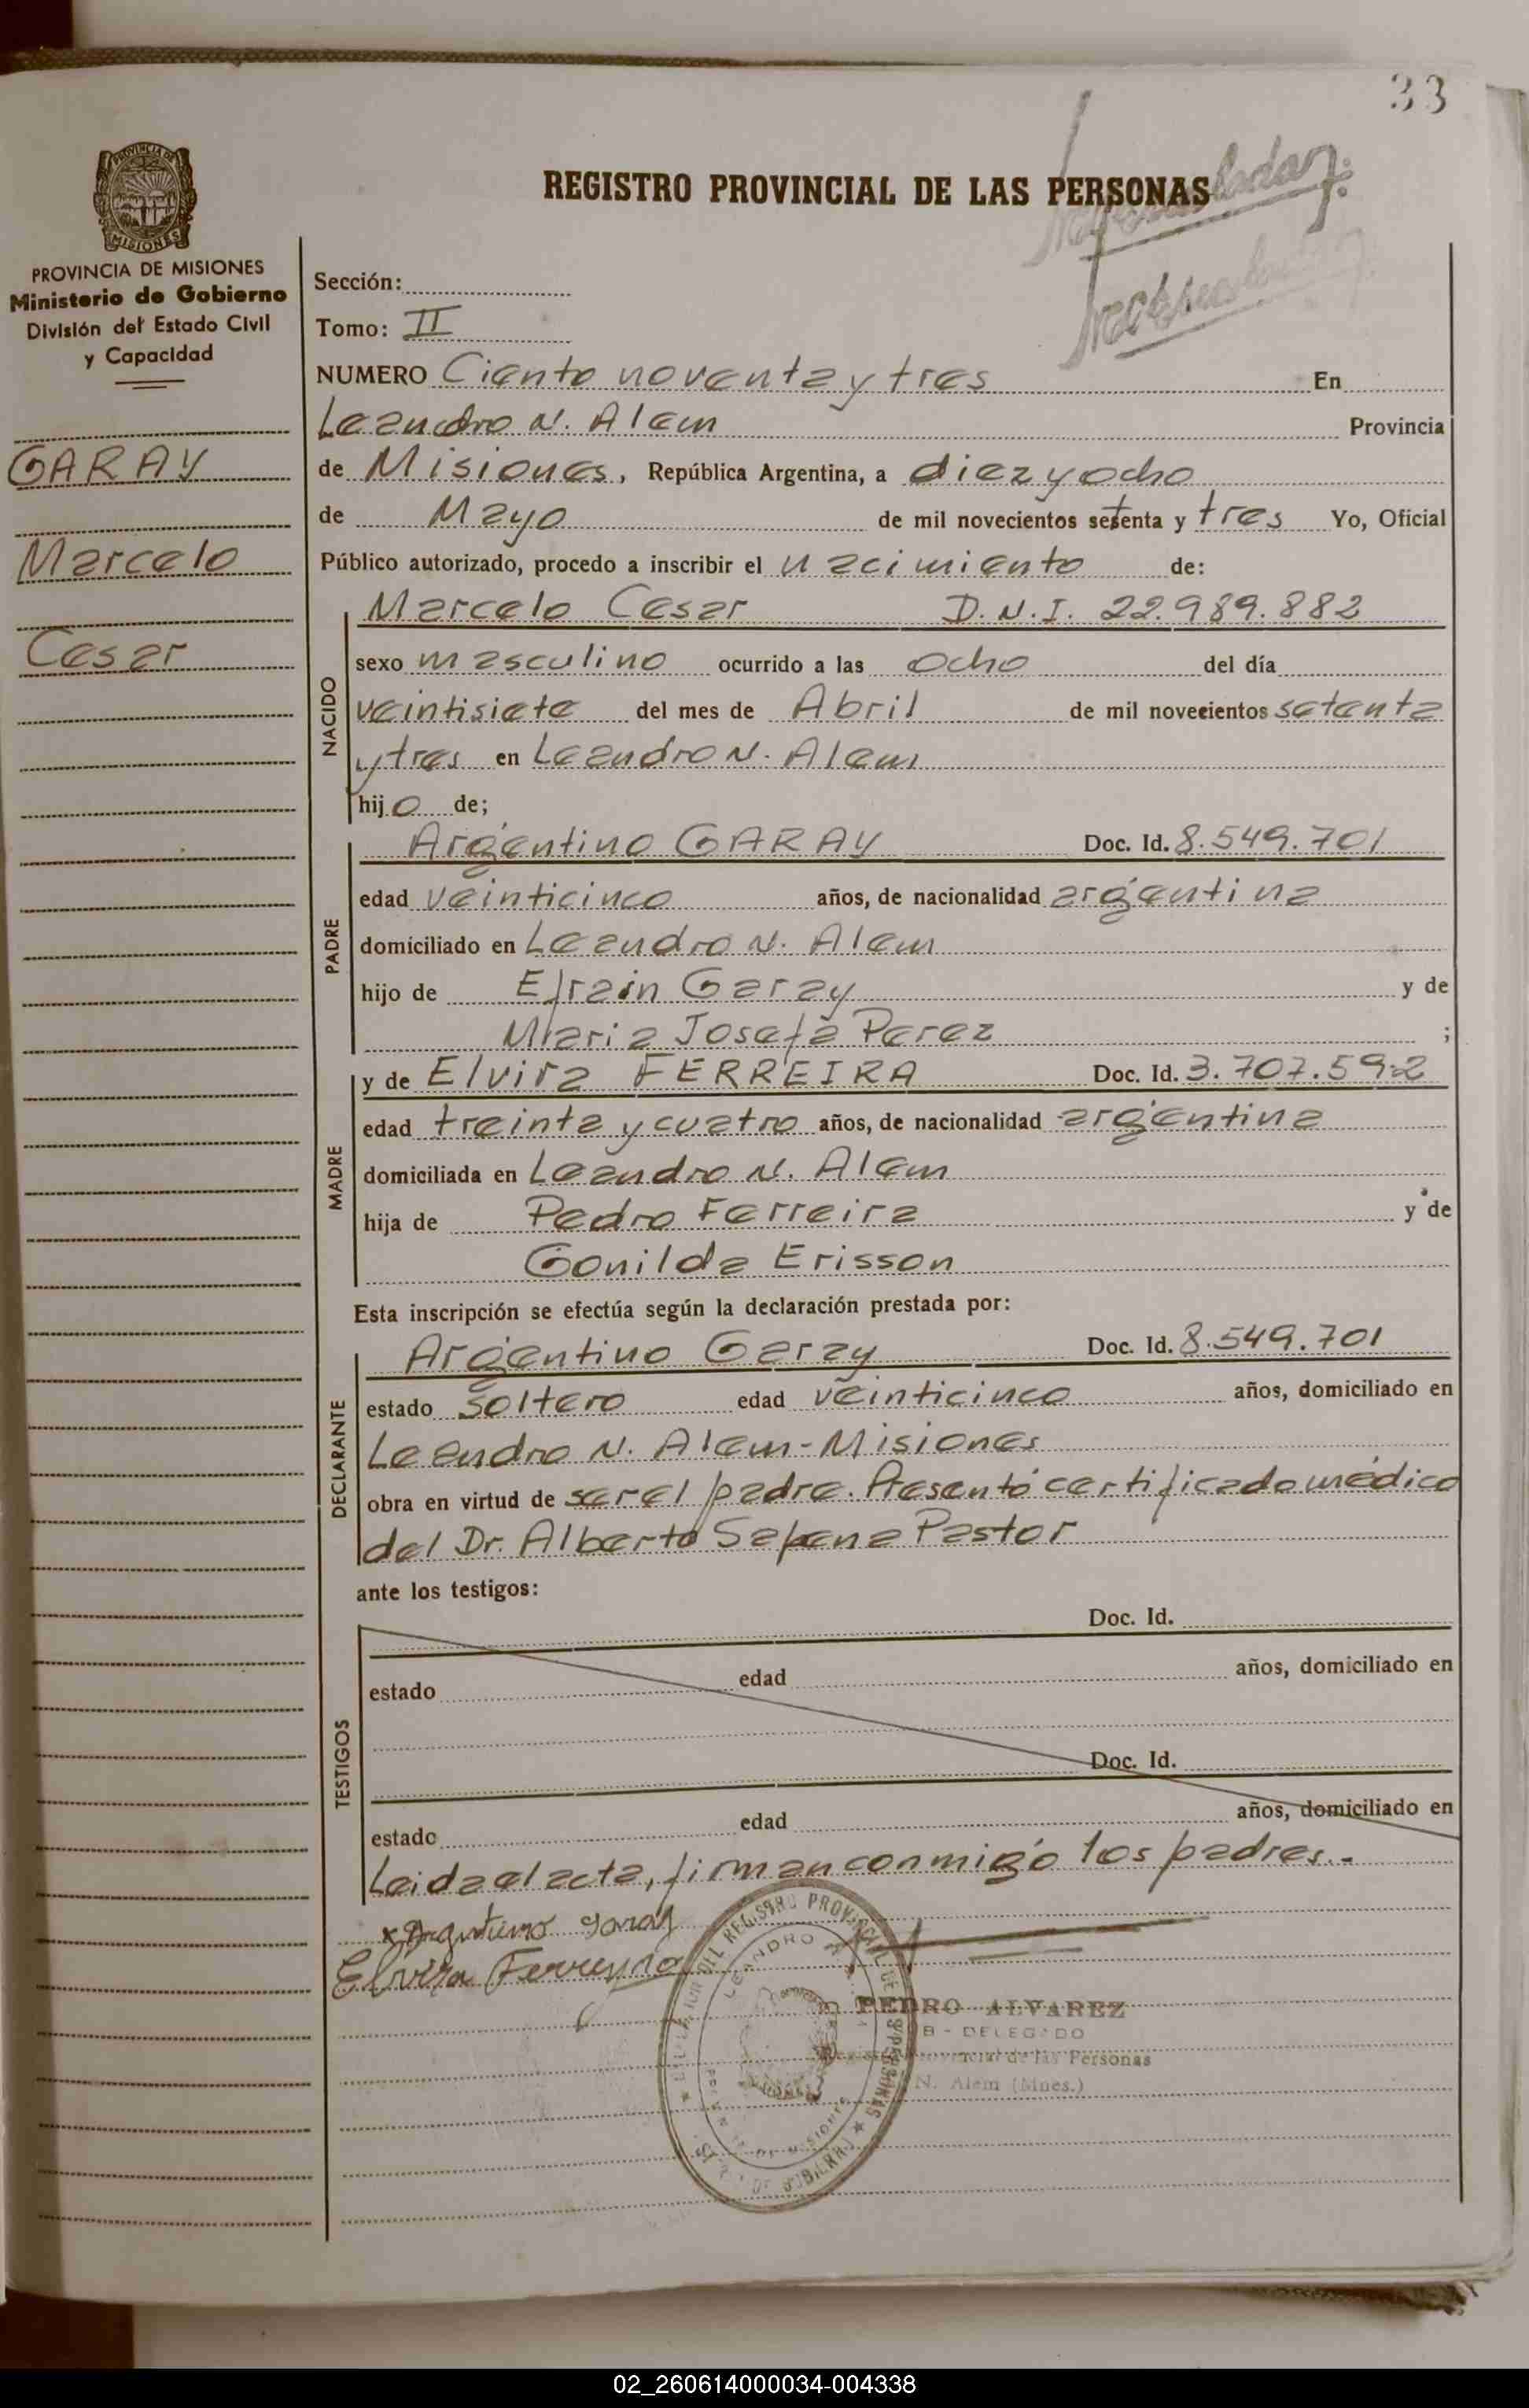 33
REGISTRO PROVINCIAL DE LAS PERSONAS
PROVINCIA DE MISIONES
Ministerio de Gobierno
División del Estado Civil
y Capacidad
GARAY
Marcelo
Cesar
Sección:
Tomo: II
NUMERO Ciento noventa y tres En
Leandro N. Alem Provincia
de Misiones, República Argentina, a diez y ocho
de Mayo de mil novecientos setenta y tres Yo, Oficial
Público autorizado, procedo a inscribir el nacimiento de:
NACIDO
Marcelo Cesar D.N.I. 22.989.882
sexo masculino ocurrido a las ocho del día
veintisiete del mes de Abril de mil novecientos setenta
y tres en Leandro N. Alem
hijo de;
PADRE
Argentino GARAY Doc. Id. 8.549.701
edad veinticinco años, de nacionalidad argentina
domiciliado en Leandro N. Alem
hijo de Efrain Garay y de
Maria Josefa Perez ;
MADRE
y de Elvira FERREIRA Doc. Id. 3.707.592
edad treinta y cuatro años, de nacionalidad argentina
domiciliada en Leandro N. Alem
hija de Pedro Ferreira y de
Gonilda Erisson
Esta inscripción se efectúa según la declaración prestada por:
DECLARANTE
Argentino Garay Doc. Id. 8.549.701
estado soltero edad veinticinco años, domiciliado en
Leandro N. Alem - Misiones
obra en virtud de ser el padre. Presentó certificado médico
del Dr. Alberto Sapena Pastor
ante los testigos:
TESTIGOS
Doc. Id.
estado edad años, domiciliado en
Doc. Id.
estado edad años, domiciliado en
Leida el acta, firman conmigo los padres.-
Elvira Ferreyra
PEDRO ALVAREZ
B - DELEGADO
Provincial de las Personas
N. Alem (Mnes.)
02_260614000034-004338